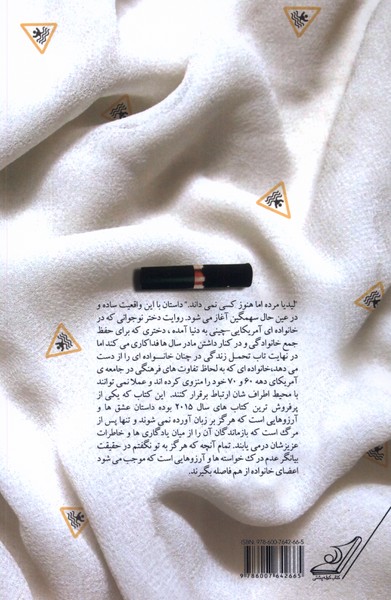 "لیدیا مرده اما هنوز کسی نمی داند." داستان با این واقعیت ساده و
در عین حال سهمگین آغاز می شود. روایت دختر نوجوانی که در
خانواده ای آمریکایی‌چینی به دنیا آمده ، دختری که برای حفظ
جمع خانوادگی و در کنار داشتن مادر سال ها فداکاری می کند اما
در نهایت تاب تحمل زندگی در چنان خانواده ای را از دست
می دهد،خانواده ای که به لحاظ تفاوت های فرهنگی در جامعه ی
آمریکای دهه ۶۰ و ۷۰ خود را منزوی کرده اند و عملا نمی توانند
با محیط اطراف شان ارتباط برقرار کنند. این کتاب که یکی از
پرفروش ترین کتاب های سال ۲۰۱۵ بوده داستان عشق ها و
آرزوهایی است که هرگز بر زبان آورده نمی شوند و تنها پس از
مرگ است که بازماندگان آن را از میان یادگاری ها و خاطرات
عزیزشان درمی یابند. تمام آنچه که هرگز به تو نگفتم در حقیقت
بیانگر عدم درک خواسته ها و آرزوهایی است که موجب می شود
اعضای خانواده از هم فاصله بگیرند.
ISBN: 978-600-7642-66-5
9 786007 642665
کتاب کوله‌پشتی